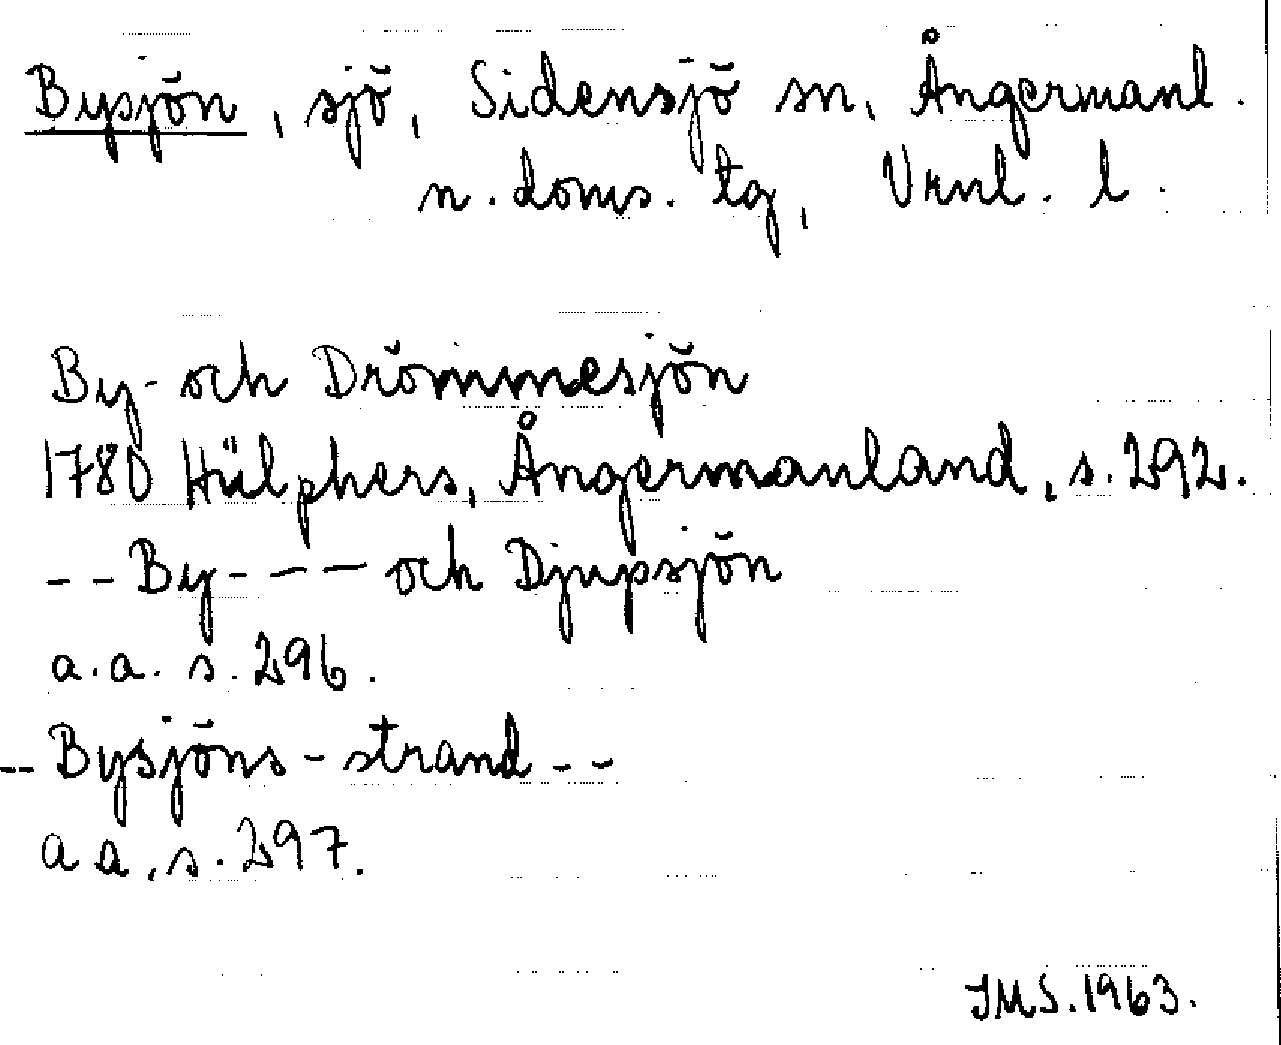 Bysjön, sjö, Sidensjö sn, Ångermanl.
n. doms. tg, Vrnl. l.
By- och Drömmesjön
1780 Hülphers, Ångermanland, s. 292.
-- By- --- och Djupsjön
a.a. s. 296.
-- Bysjöns-strand --
a a, s. 297.
JMS. 1963.